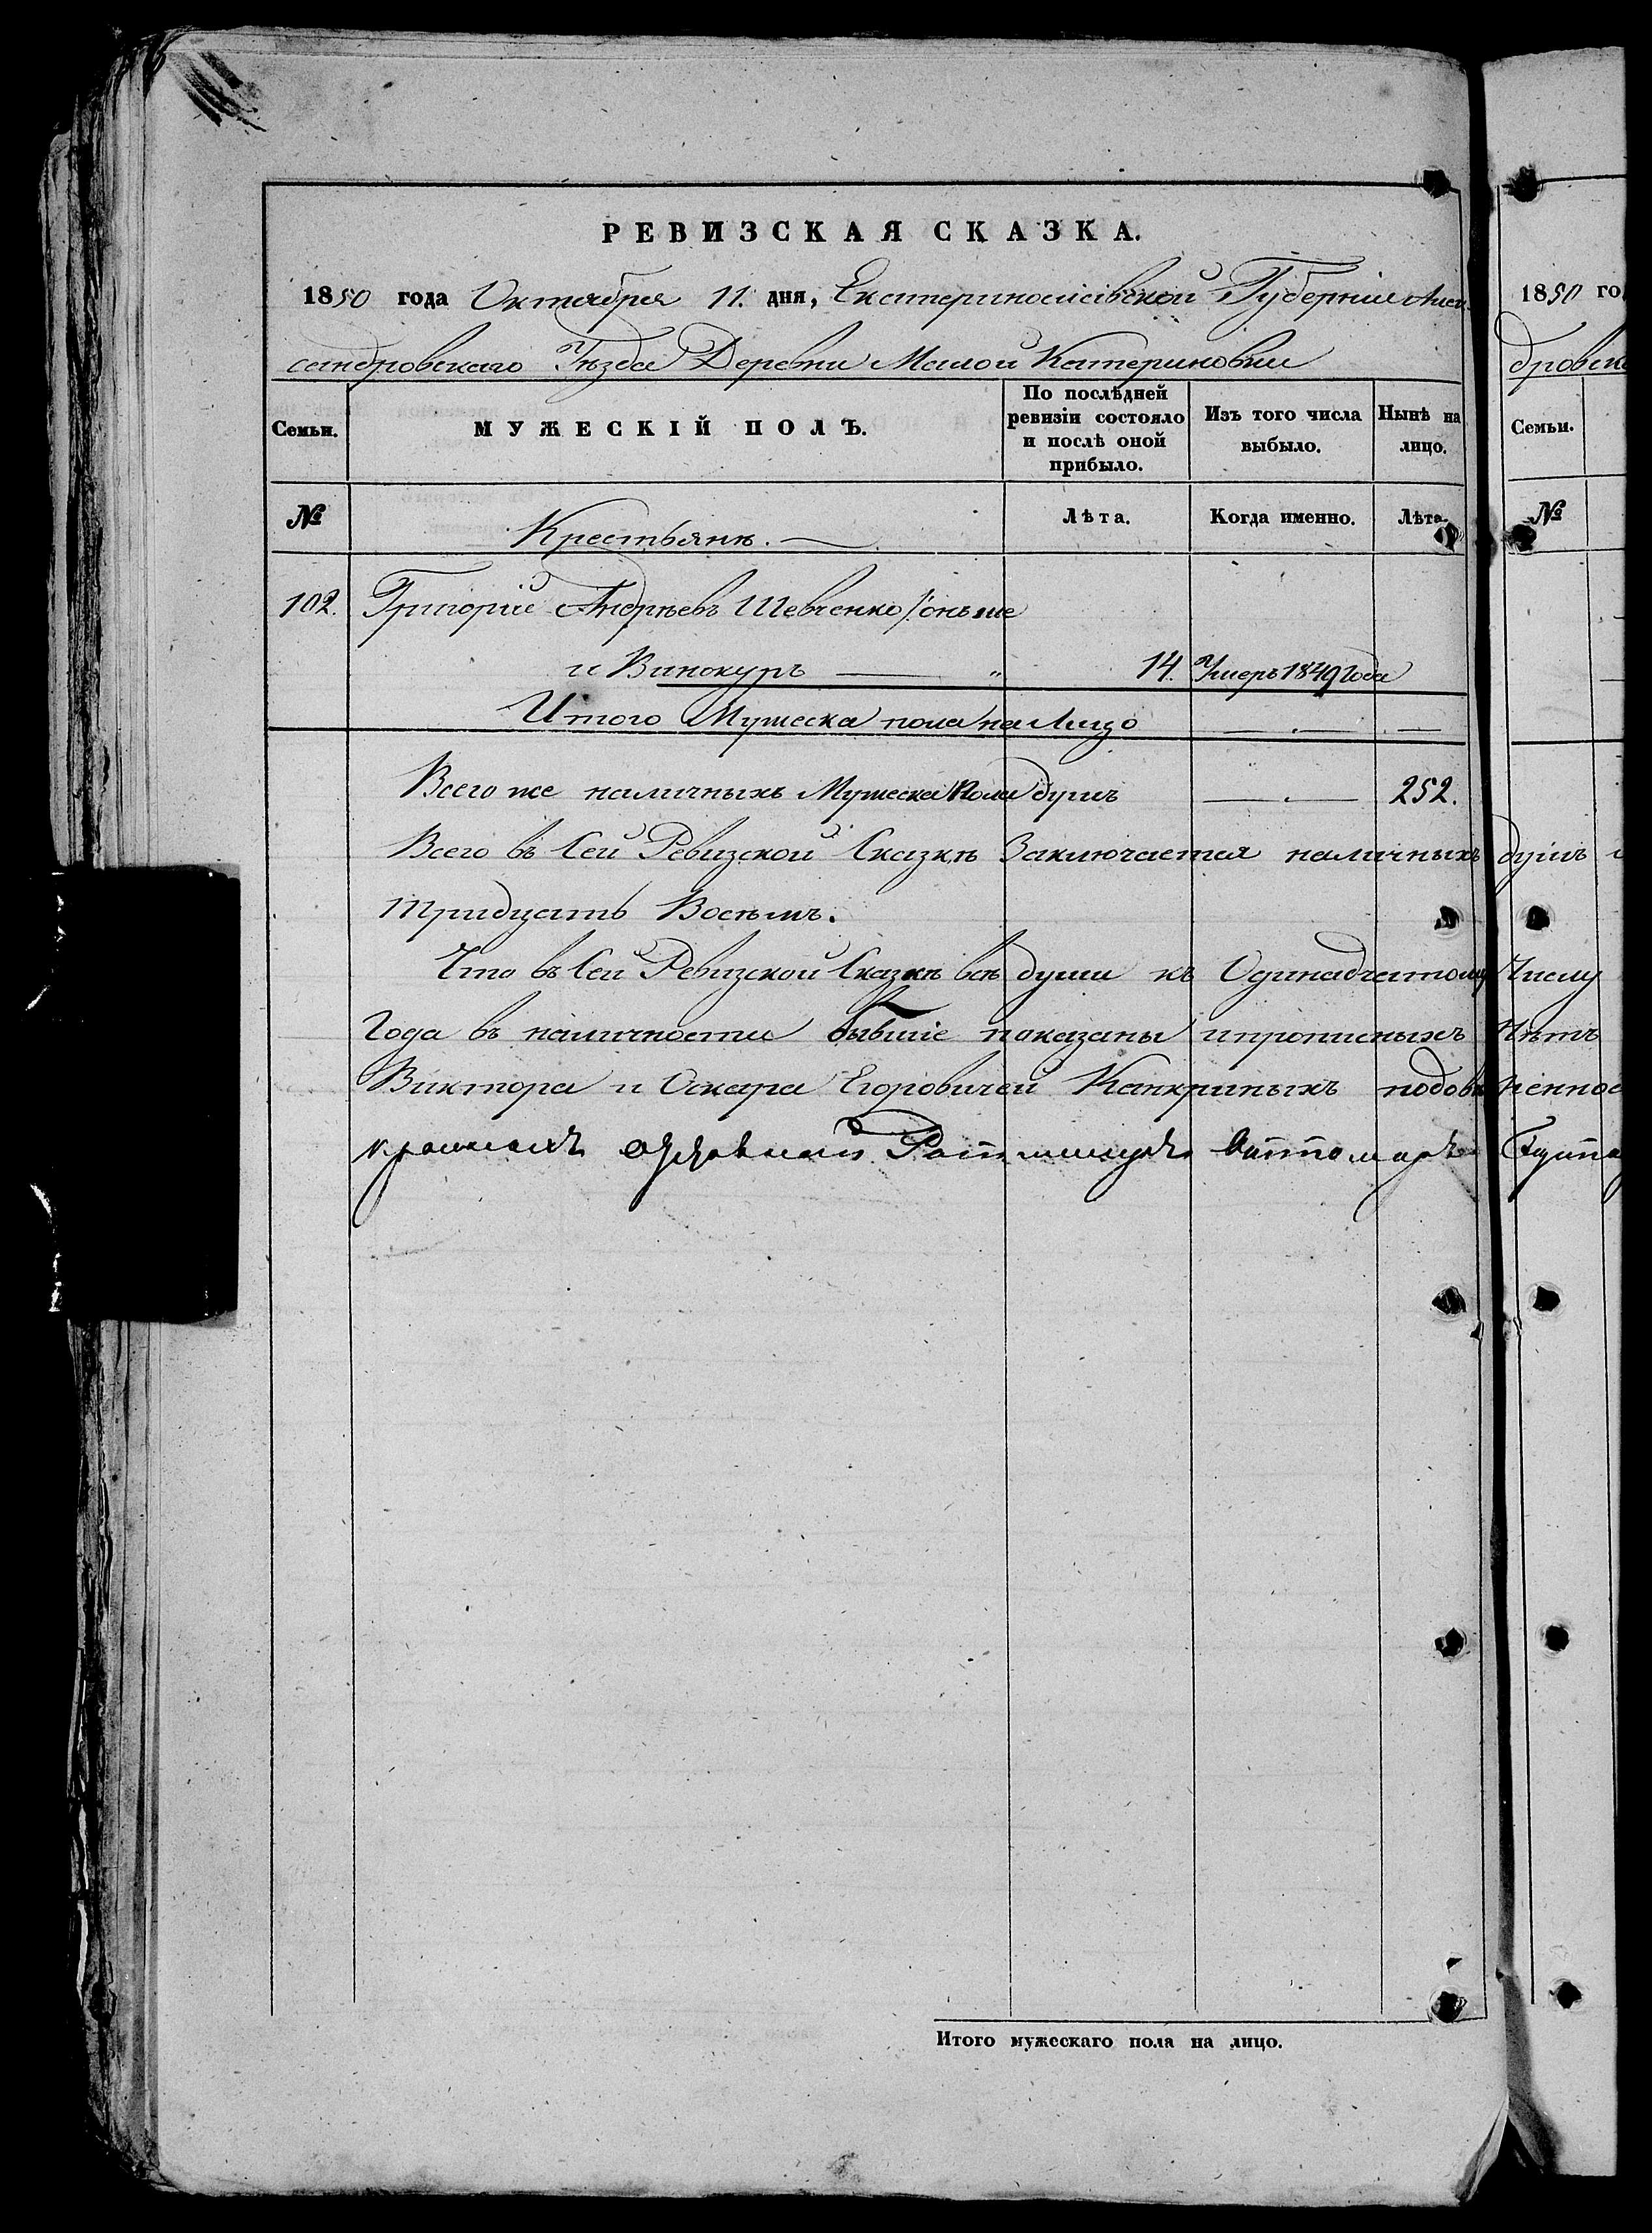 РЕВИЗСКАЯ СКАЗКА.
1850 года Октября 11. дня, Екатеринославской Губернии Алек
сандровскаго Уезда Деревни Малой Катериновки
Семьи. МУЖЕСКІЙ ПОЛЪ. По послѣдней ревизіи состояло и послѣ оной прибыло. Изъ того числа выбыло. Нынѣ на лицо.
№ Крестьянѣ. Лѣта. Когда именно. Лѣта.
102. Григорий Андрѣевъ Шевченко / онъ же
и Винокуръ " 14. Умеръ 1849 Года
Итого Мужеска пола на Лицо
Всего же наличныхъ Мужеска Пола душъ 252.
Всего въ Сей Ревизской Сказкѣ Заключается наличныхъ душъ
тридцать Восѣмъ.
Что въ Сей Ревизской Сказкѣ всѣ души къ Одинадчатому Числу
Года въ наличности бывшіе показаны и прописныхъ Нѣтъ
Виктора и Оскара Егоровичей Канкриныхъ
1850 го
дровска
Семьи.
№
Итого мужескаго пола на лицо.